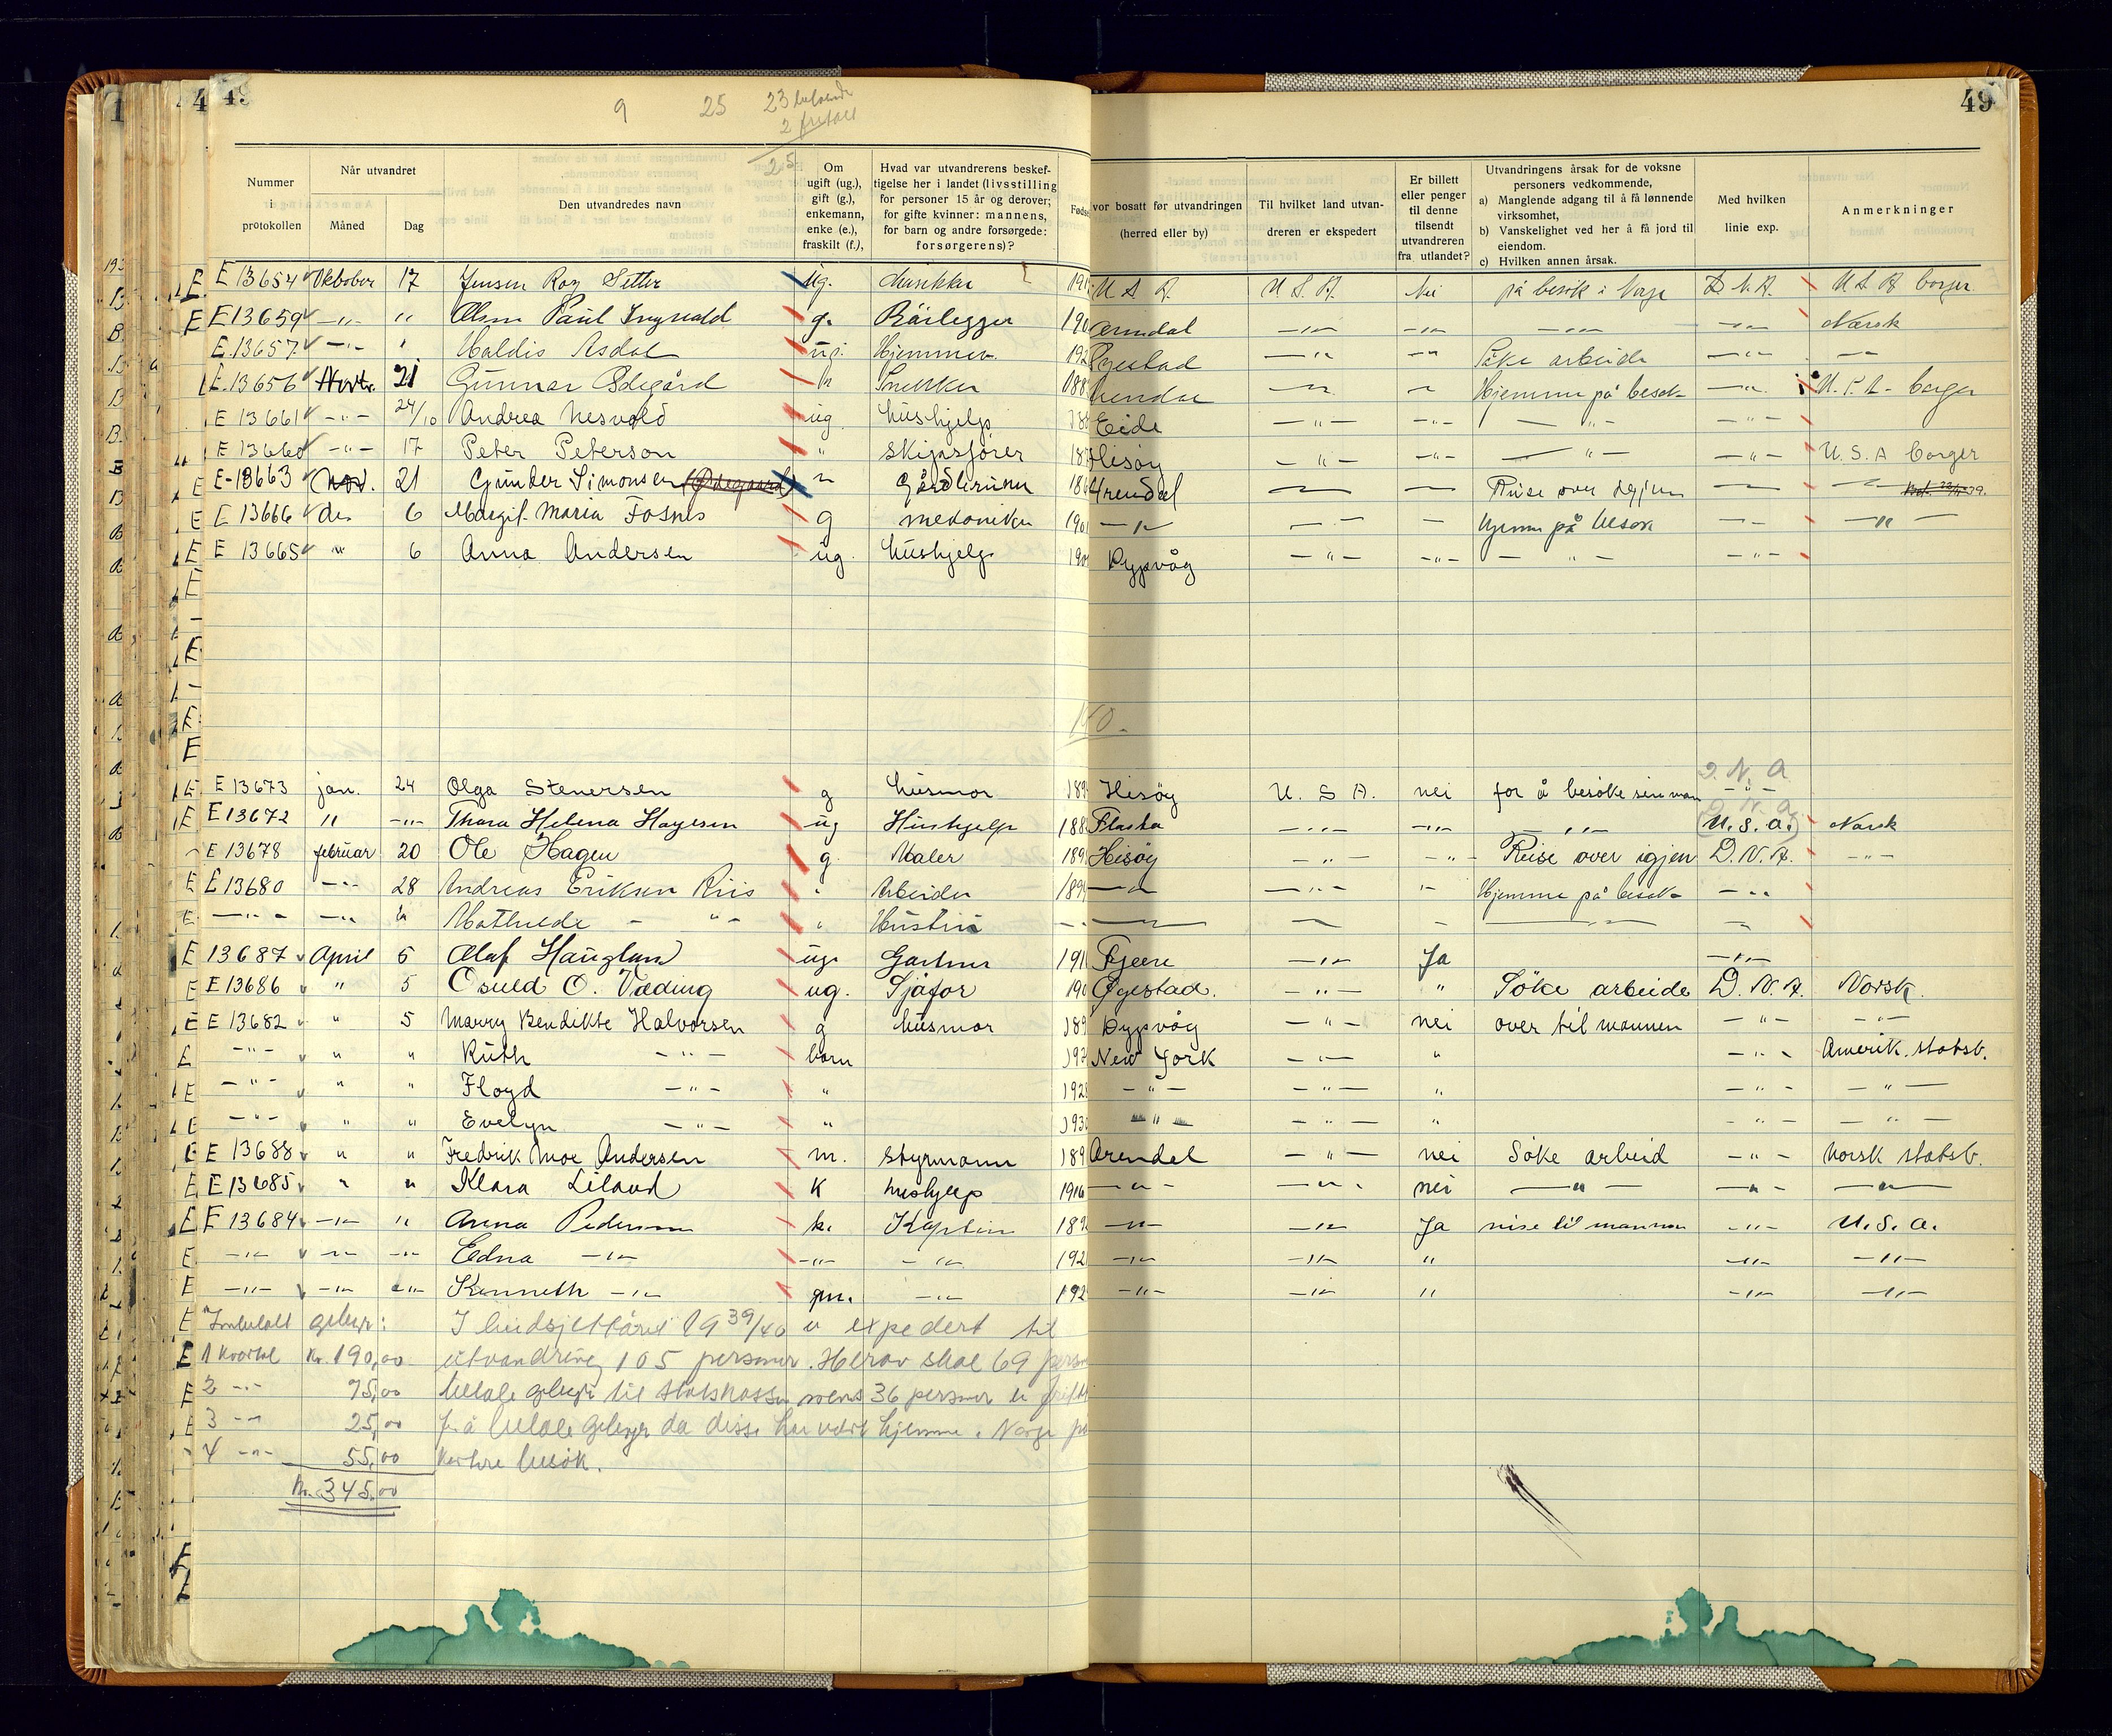 49
9 25 23 betalende
2 fritatt
25
Nummer i protokollen | Når utvandret Måned | Dag | Den utvandredes navn | Om ugift (ug.), gift (g.), enkemann, enke (e.), fraskilt (f.), | Hvad var utvandrerens beskef-tigelse her i landet (livsstilling for personer 15 år og derover; for gifte kvinner: mannens, for barn og andre forsørgede: forsørgerens)? | Fødse | vor bosatt før utvandringen (herred eller by) | Til hvilket land utvan-dreren er ekspedert | Er billett eller penger til denne tilsendt utvandreren fra utlandet? | Utvandringens årsak for de voksne personers vedkommende, a) Manglende adgang til å få lønnende virksomhet, b) Vanskelighet ved her å få jord til eiendom. c) Hvilken annen årsak. | Med hvilken linie exp. | Anmerkninger
E 13654 Oktober 17 Jensen Roy Setter ug. U S A. U S A. Nei på besøk i Norge D. N. A. U S A borger
E 13659 -"- " Olsen Paul Ingvald g. Rörlegger 190 Arendal -"- -"- -"- -"- Norsk
E. 13657 -"- " Haldis Asdal ug. Hjemmev. 192 Øyestad -"- -"- Söke arbeide -"- -"-
E. 13656 21 Gunnar Ødegård Snekker 188 Arendal Hjemme på besøk -"- U. S. A - borger
E 13661 -"- 24/10 Andrea Nesvold ug hushjelp Eide -"- -"- -"- -"-
E 13660 -"- 17 Peter Peterson " skipsförer Hisöy -"- -"- -"- -"- U.S.A borger
E-13663 Nov. 21 Gunder Simonsen (Ødegaard) " 18 Arendal Reise over igjen
E 13666 des 6 Margit Maria Fosnes g mekaniker 190 -"- hjemme på besøk -"-
E 13665 " 6 Anna Andersen ug. hushjelp 190 Dypvåg -"- -"- -"- -"-
D. N. A
E 13673 jan. 24 Olga Stenersen g husmor 189 Hisöy U. S A. nei for å besöke sin man -"-
E 13672 " -"- Thora Helena Hagesen ug Hushjelp 188 Flosta -"- -"- -"- (U.S.A.) Norsk
E 13678 februar 20 Ole Hagen g. Maler 189 Hisöy -"- -"- Reise over igjen D.N.A. -"-
E 13680 -"- 28 Andreas Eriksen Riis " Arbeider 189 -"- -"- "- Hjemme på besøk -"-
-"- -"- " Mathilde - "- " Hustru
E 13687 April 5 Olaf Hauglund ug. Gartner 191 Fjære -"- Ja -"-
E 13686 " 5 Osuld O. Væding ug. Sjåfør 190 Øyestad. -"- " Söke arbeide D.N.A. Norsk.
E 13682 " 5 Marry Bendikte Halvorsen g husmor 189 Dypvåg -"- nei over til mannen -"- -"-
-"- " " Ruth -"- barn 192 New York -"- " -"- Amerik. statsb.
-"- " " Floyd -"- " 1928 -"- -"- " -"- -"-
-"- " " Evelyn -"- " 193 -"- -"- " -"- -"-
E 13688 " " Fredrik Moe Andersen m. styrmann 189 Arendal -"- nei Söke arbeid -"- Norsk statsb.
E 13685 " " Klara Liland K hushjelp 1916 -"- -"- nei -"- -"- -"-
E 13684 -"- " Anna Pedersen k. Kaptein 189 -"- -"- Ja reise til mannen -"- U.S.A.
-"- -"- -"- Edna -"- -"- -"- 192 -"- -"- " -"- -"-
-"- -"- -"- Kenneth -"- gm. -"- 192 -"- -"- " -"- -"-
Innbetalt gebyr: I budsjettåret 1939/40 er expedert til
1 kvartal kr. 190,00 utvandring 105 personer. Herav skal 69 person
2 -"- 75,00 betale gebyr til statskassen mens 36 personer er fritt
3 -"- 25,00 for å betale gebyr da disse har vært hjemme i Norge på
4 -"- 55,00 kortere besök.
Kr. 345.00